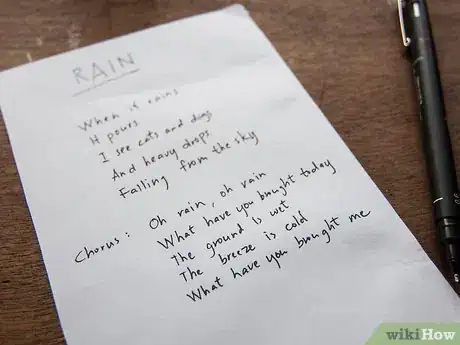 RAIN
When it rains
It pours
I see cats and dogs
And heavy drops
Falling from the sky
Chorus: Oh rain, oh rain
What have you bought today
The ground is wet
The breeze is cold
What have you brought me
wikiHow